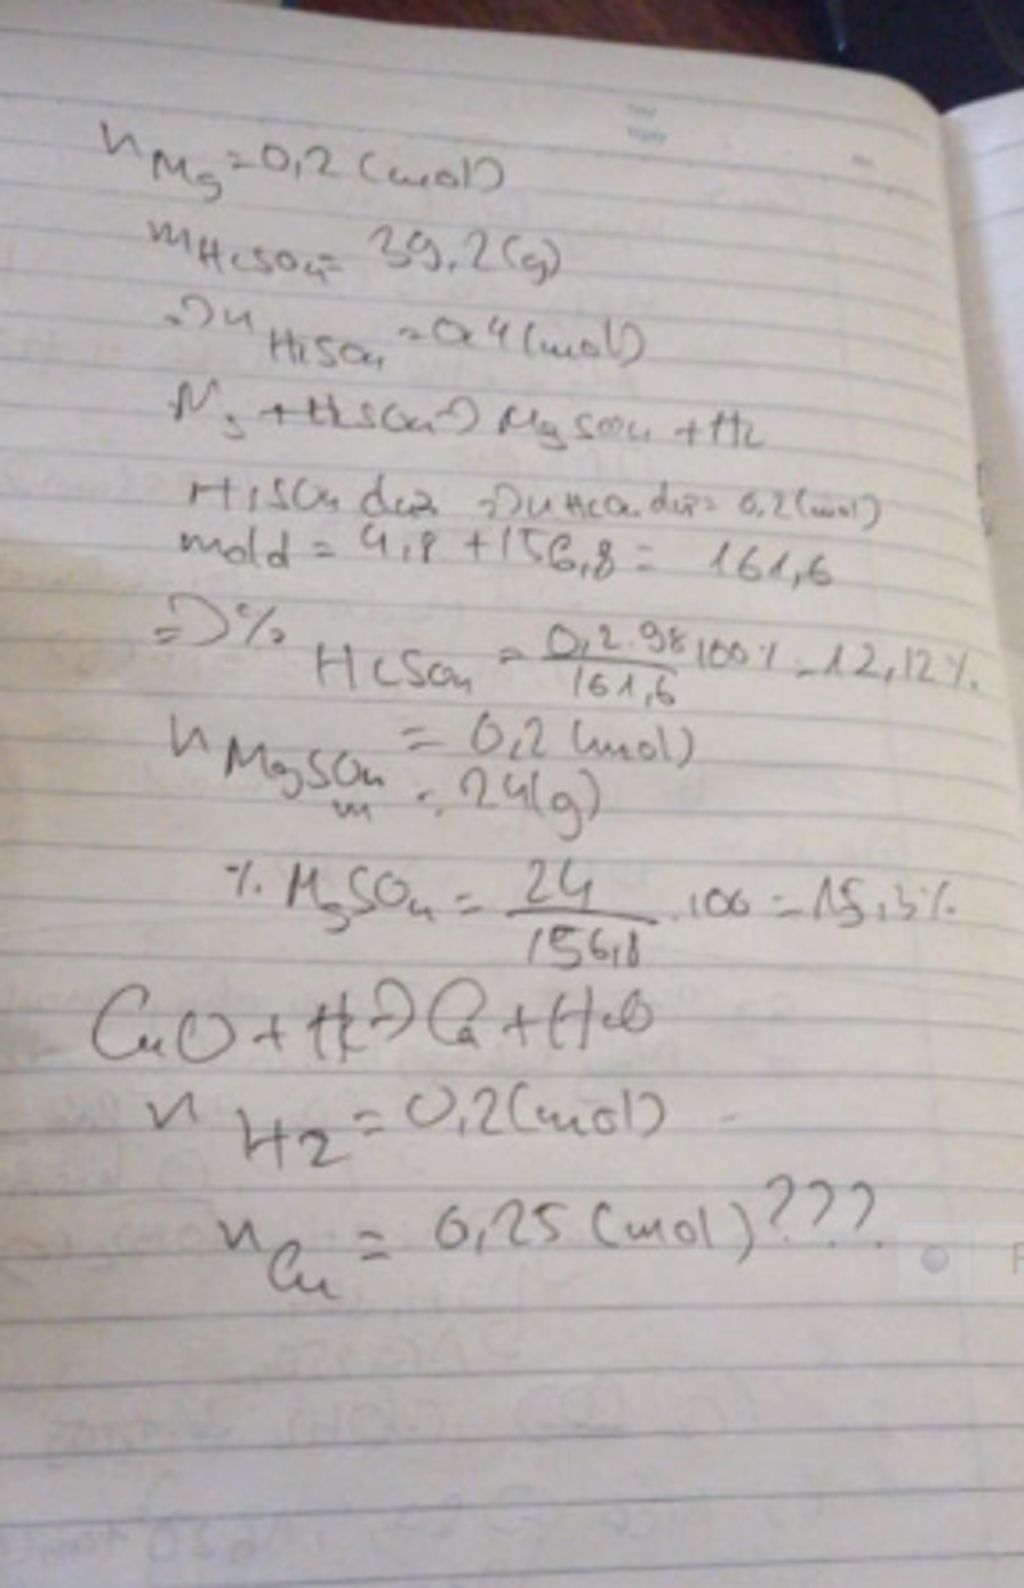 nMg = 0,2 (mol)
mH2SO4 = 39,2 (g)
=> nH2SO4 = 0,4 (mol)
Mg + H2SO4 -> MgSO4 + H2
H2SO4 dư => nH2SO4 dư = 0,2 (mol)
mdd = 4,8 + 156,8 = 161,6
=> % H2SO4 = 0,2.98/161,6 100% = 12,12%.
nMgSO4 = 0,2 (mol)
m = 24(g)
%. MgSO4 = 24/156,8 .100 = 15,3%.
CuO + H2 -> Cu + H2O
nH2 = 0,2 (mol)
nCu = 0,25 (mol)???